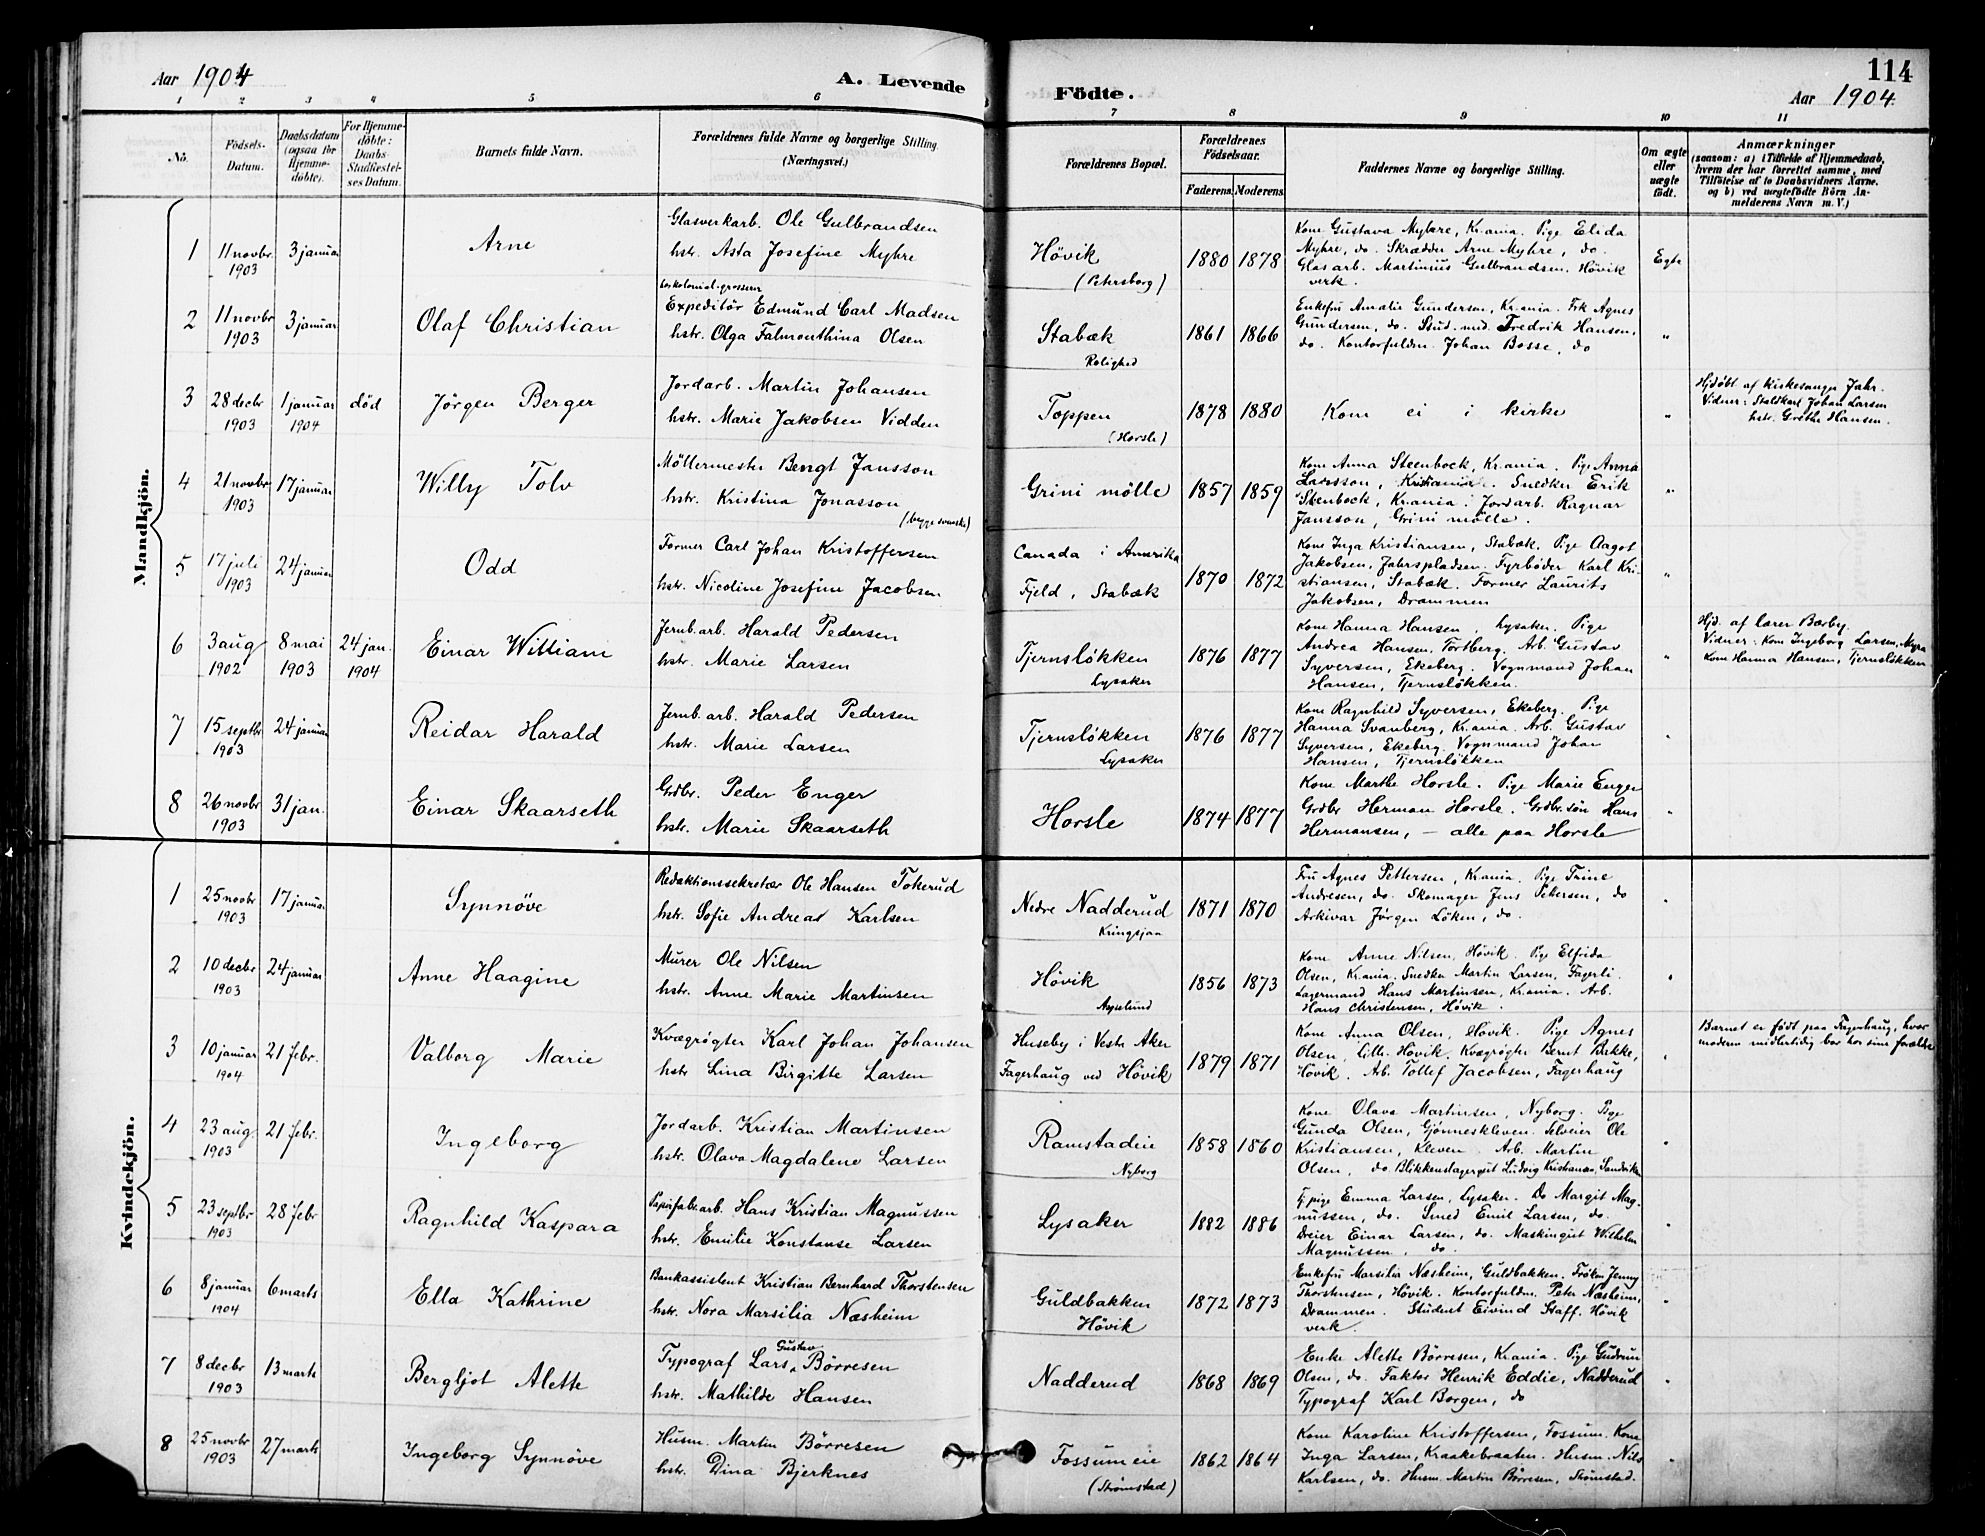 Aar 1904
A. Levende
Födte.
114
Aar 1904
1 2 3 4 5 6 7 8 9 10 11
No.
Födsels-Datum.
Daabsdatum (ogsaa for Hjemmedöbte).
For Hjemmedöbte: Daabs-Stadfæstelses Datum.
Barnets fulde Navn.
Forældrenes fulde Navne og borgerlige Stilling (Næringsvei.)
Forældrenes Bopæl.
Forældrenes Födselsaar.
Faderens. Moderens.
Faddernes Navne og borgerlige Stilling.
Om ægte eller uægte födt.
Anmærkninger
(saasom: a) i Tilfælde af Hjemmedaab, hvem der har forrettet samme, med Tilföielse af to Daabsvidners Navne, og b) ved uægtefödte Börn Anmelderens Navn m. V.)
Mandkjön.
1 11 novbr 1903 3 januar Arne
Glasverkarb. Ole Gulbrandsen
hstr. Asta Josefine Myhre
Høvik (Petersborg) 1880 1878
Kone Gustava Myhre, Kr.ania. Pige Elida
Myhre, do. Skrædder Arne Myhre, do.
Glasarb. Martinius Gulbrandsen, Høvik
verk.
Egte
2 11 novbr 1903 3 januar Olaf Christian
Expeditör Edmund Carl Madsen
hstr. Olga Falmouthina Olsen
Stabæk Rolighed 1861 1866
Enkefru Amalie Gundersen, Kr.ania. Frk Agnes
Gundersen, do. Stud. med. Fredrik Hansen,
do. Kontorfuldm. Johan Bosse, do
"
3 28 decbr 1903 1 januar 1904 död Jörgen Berger
Jordarb. Martin Johansen
hstr. Marie Jakobsen Vidden
Toppen (Horsle) 1878 1880
Kom ei i kirke
"
Hjdøbt af kirkesanger Jahr.
Vidner: Staldkarl Johan Larsen
hstr. Grethe Hansen.
4 21 novbr 1903 17 januar Willy Tolv
Möllermester Bengt Jansson
hstr. Kristina Jonasson
(begge svenske)
Grini mölle 1857 1859
Kone Anna Steenbock, Kr.ania. Pige Anna
Larsson, Kristiania. Snedker Erik
Stenbock, Kr.ania. Jordarb. Ragnar
Jansson, Grini mölle.
"
5 17 juli 1903 24 januar Odd
Former Carl Johan Kristoffersen
hstr. Nicoline Josefine Jacobsen
Canada i Amerika
Fjeld, Stabæk 1870 1872
Kone Inga Kristiansen, Stabæk. Pige Aagot
Jakobsen, Jahrspladsen. Fyrbøder Karl Kri-
stiansen, Stabæk. Former Laurits
Jakobsen, Drammen
"
6 3 aug 1902 8 mai 1903 24 jan. 1904 Einar William
Jernb.arb. Harald Pedersen
hstr. Marie Larsen
Tjernsløkken Lysaker 1876 1877
Kone Hanna Hansen Lysaker. Pige
Andrea Hansen, Torfberg. Arb. Gustav
Syversen, Ekeberg. Vognmand Johan
Hansen, Tjernsløkken.
"
Hjd. af lærer Bærby.
Vidner: Kone Ingeborg Larsen, Myra
Kone Hanna Hansen, Tjernsløkken
7 15 septbr 1903 24 januar Reidar Harald
Jernb.arb. Harald Pedersen
hstr. Marie Larsen
Tjernsløkken Lysaker 1876 1877
Kone Ragnhild Syversen, Ekeberg. Pige
Hanna Svanberg, Kr.ania. Arb. Gustav
Syversen, Ekeberg. Vognmand Johan
Hansen, Tjernsløkken
"
8 26 novbr 1903 31 jan. Einar Skaarseth
Grdbr. Peder Enger
hstr. Marie Skaarseth
Horsle 1874 1877
Kone Marthe Horsle. Pige Marie Enger
Grdbr Herman Horsle. Grdbr.søn Hans
Hermansen, – alle paa Horsle
"
Kvindekjön.
1 25 novbr 1903 17 januar Synnöve
Redaktionssekretær Ole Hansen Tokerud
hstr. Sofie Andrea Karlsen
Nedre Nadderud Kringsjaa 1871 1870
Fru Agnes Pettersen, Kr.ania. Pige Trine
Andresen, do. Skomager Jens Petersen, do
Arkivar Jörgen Löken, do.
"
2 10 decbr 1903 24 januar Anne Haagine
Murer Ole Nilsen
hstr. Anne Marie Martinsen
Høvik 1856 1873
Kone Anne Nilsen, Høvik. Pige Elfrida
Olsen, Kr.ania. Snedker Martin Larsen, Fagerli.
Lagermand Hans Martinsen, Kr.ania. Arb.
Hans Christensen, Høvik.
"
3 10 januar 1904 21 febr. Valborg Marie
Kvægrøgter Karl Johan Johansen
hstr Lina Birgitte Larsen
Huseby i Vestre Aker
Fagerhaug ved Høvik 1879 1871
Kone Anna Olsen, Høvik. Pige Agnes
Olsen, Lille Høvik. Kvægrøgter Bernt Bakke,
Høvik. Arb. Tollef Jacobsen, Fagerhaug
"
Barnet er født paa Fagerhaug, hvor
moderen midlertidig bor hos sine forældre
4 23 aug. 1903 21 febr. Ingeborg
Jordarb. Kristian Martinsen
hstr. Olava Magdalene Larsen
Ramstadeie Nyborg 1858 1860
Kone Olava Martinsen, Nyborg. Pige
Gunda Olsen, Gjönneskleven. Selveier Ole
Kristiansen, Kleven. Arb. Martin
Olsen, do. Blikkenslagergut Ludvig Kristiansen, Sandviken
"
5 23 septbr 1903 28 febr Ragnhild Kaspara
Papirfabr.arb. Hans Kristian Magnussen
hstr. Emilie Konstanse Larsen
Lysaker 1882 1886
Tj.pige Emma Larsen, Lysaker. Do Margit Mag-
nussen, do. Smed Emil Larsen, do.
Dreier Einar Larsen, do. Maskingut Wilhelm
Magnussen, do.
"
6 8 januar 1904 6 marts Ella Kathrine
Bankassistent Kristian Bernhard Thorstensen
hstr. Nora Marsilia Næsheim
Guldbakken Høvik 1872 1873
Enkefru Marsilia Næsheim, Guldbakken. Frøken Jenny
Thorstensen, Høvik. Kontorfuldm. Peter Næsheim,
Drammen. Student Eivind Staff, Høvik
verk.
"
7 8 decbr 1903 13 marts Bergljot Alette
Typograf Lars Gustav Börresen
hstr. Mathilde Hansen
Nadderud 1868 1869
Enke Alette Börresen, Kr.ania. Pige Gudrun
Olsen, do. Faktor Henrik Eddie, Nadderud
Typograf Karl Borgen, do
"
8 25 novbr 1903 27 marts Ingeborg Synnöve
Husm. Martin Börresen
hstr. Dina Bjerknes
Fossumeie (Strömstad) 1862 1864
Kone Karoline Kristoffersen, Fossum. Kone
Inga Larsen, Kraakebraaten. Husm. Nils
Karlsen, do. Husm. Martin Börresen, Strömstad.
"